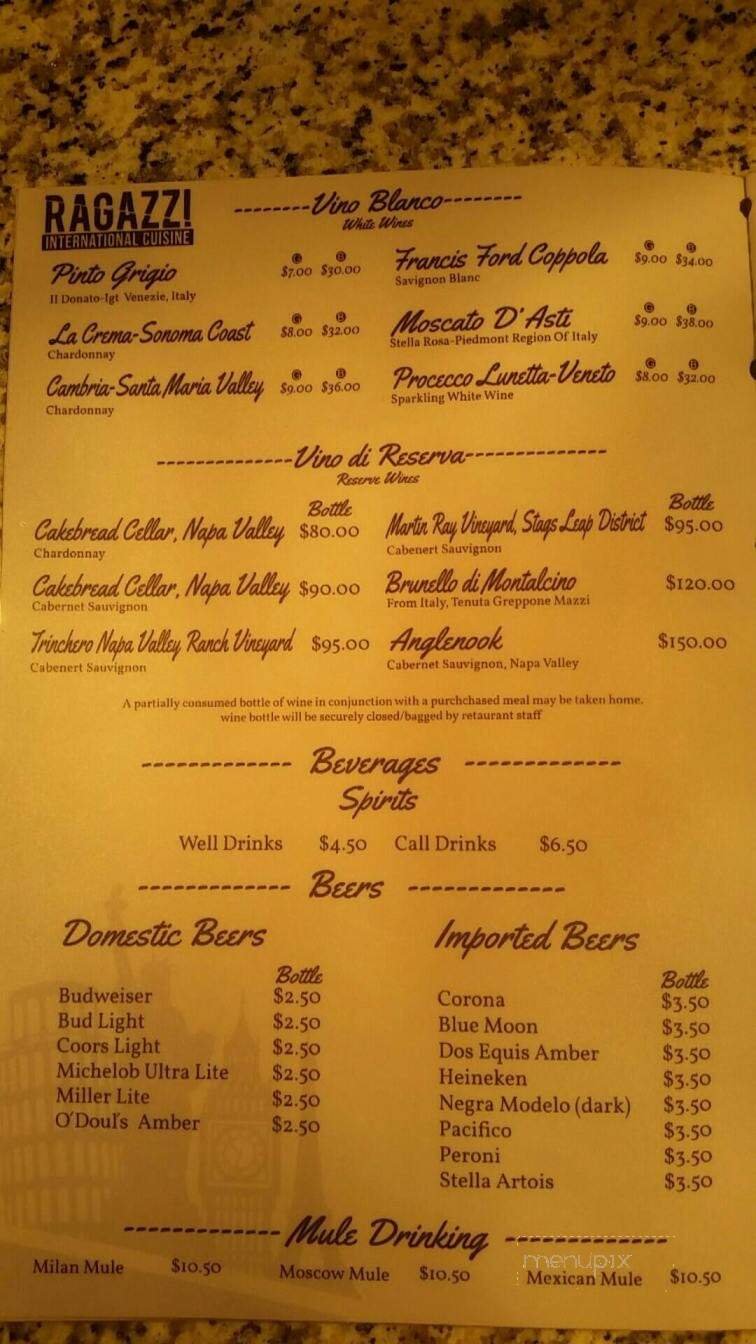 RAGAZZI
INTERNATIONAL CUISINE
--------Vino Blanco--------
White Wines
Pinto Grigio
G B
$7.00 $30.00
Il Donato-Igt Venezie, Italy
La Crema-Sonoma Coast
G B
$8.00 $32.00
Chardonnay
Cambria-Santa Maria Valley
G B
$9.00 $36.00
Chardonnay
Francis Ford Coppola
G B
$9.00 $34.00
Savignon Blanc
Moscato D'Asti
G B
$9.00 $38.00
Stella Rosa-Piedmont Region Of Italy
Procecco Lunetta-Veneto
G B
$8.00 $32.00
Sparkling White Wine
--------------Vino di Reserva--------------
Reserve Wines
Bottle
Cakebread Cellar, Napa Valley $80.00
Chardonnay
Cakebread Cellar, Napa Valley $90.00
Cabernet Sauvignon
Trinchero Napa Valley Ranch Vineyard $95.00
Cabenert Sauvignon
Bottle
Martin Ray Vineyard, Stags Leap District $95.00
Cabenert Sauvignon
Brunello di Montalcino $120.00
From Italy, Tenuta Greppone Mazzi
Anglenook $150.00
Cabernet Sauvignon, Napa Valley
A partially consumed bottle of wine in conjunction with a purchchased meal may be taken home.
wine bottle will be securely closed/bagged by retaurant staff
------------- Beverages -------------
Spirits
Well Drinks $4.50 Call Drinks $6.50
------------- Beers -------------
Domestic Beers
Bottle
Budweiser $2.50
Bud Light $2.50
Coors Light $2.50
Michelob Ultra Lite $2.50
Miller Lite $2.50
O'Doul's Amber $2.50
Imported Beers
Bottle
Corona $3.50
Blue Moon $3.50
Dos Equis Amber $3.50
Heineken $3.50
Negra Modelo (dark) $3.50
Pacifico $3.50
Peroni $3.50
Stella Artois $3.50
------------- Mule Drinking -------------
Milan Mule $10.50 Moscow Mule $10.50 Mexican Mule $10.50
menupix